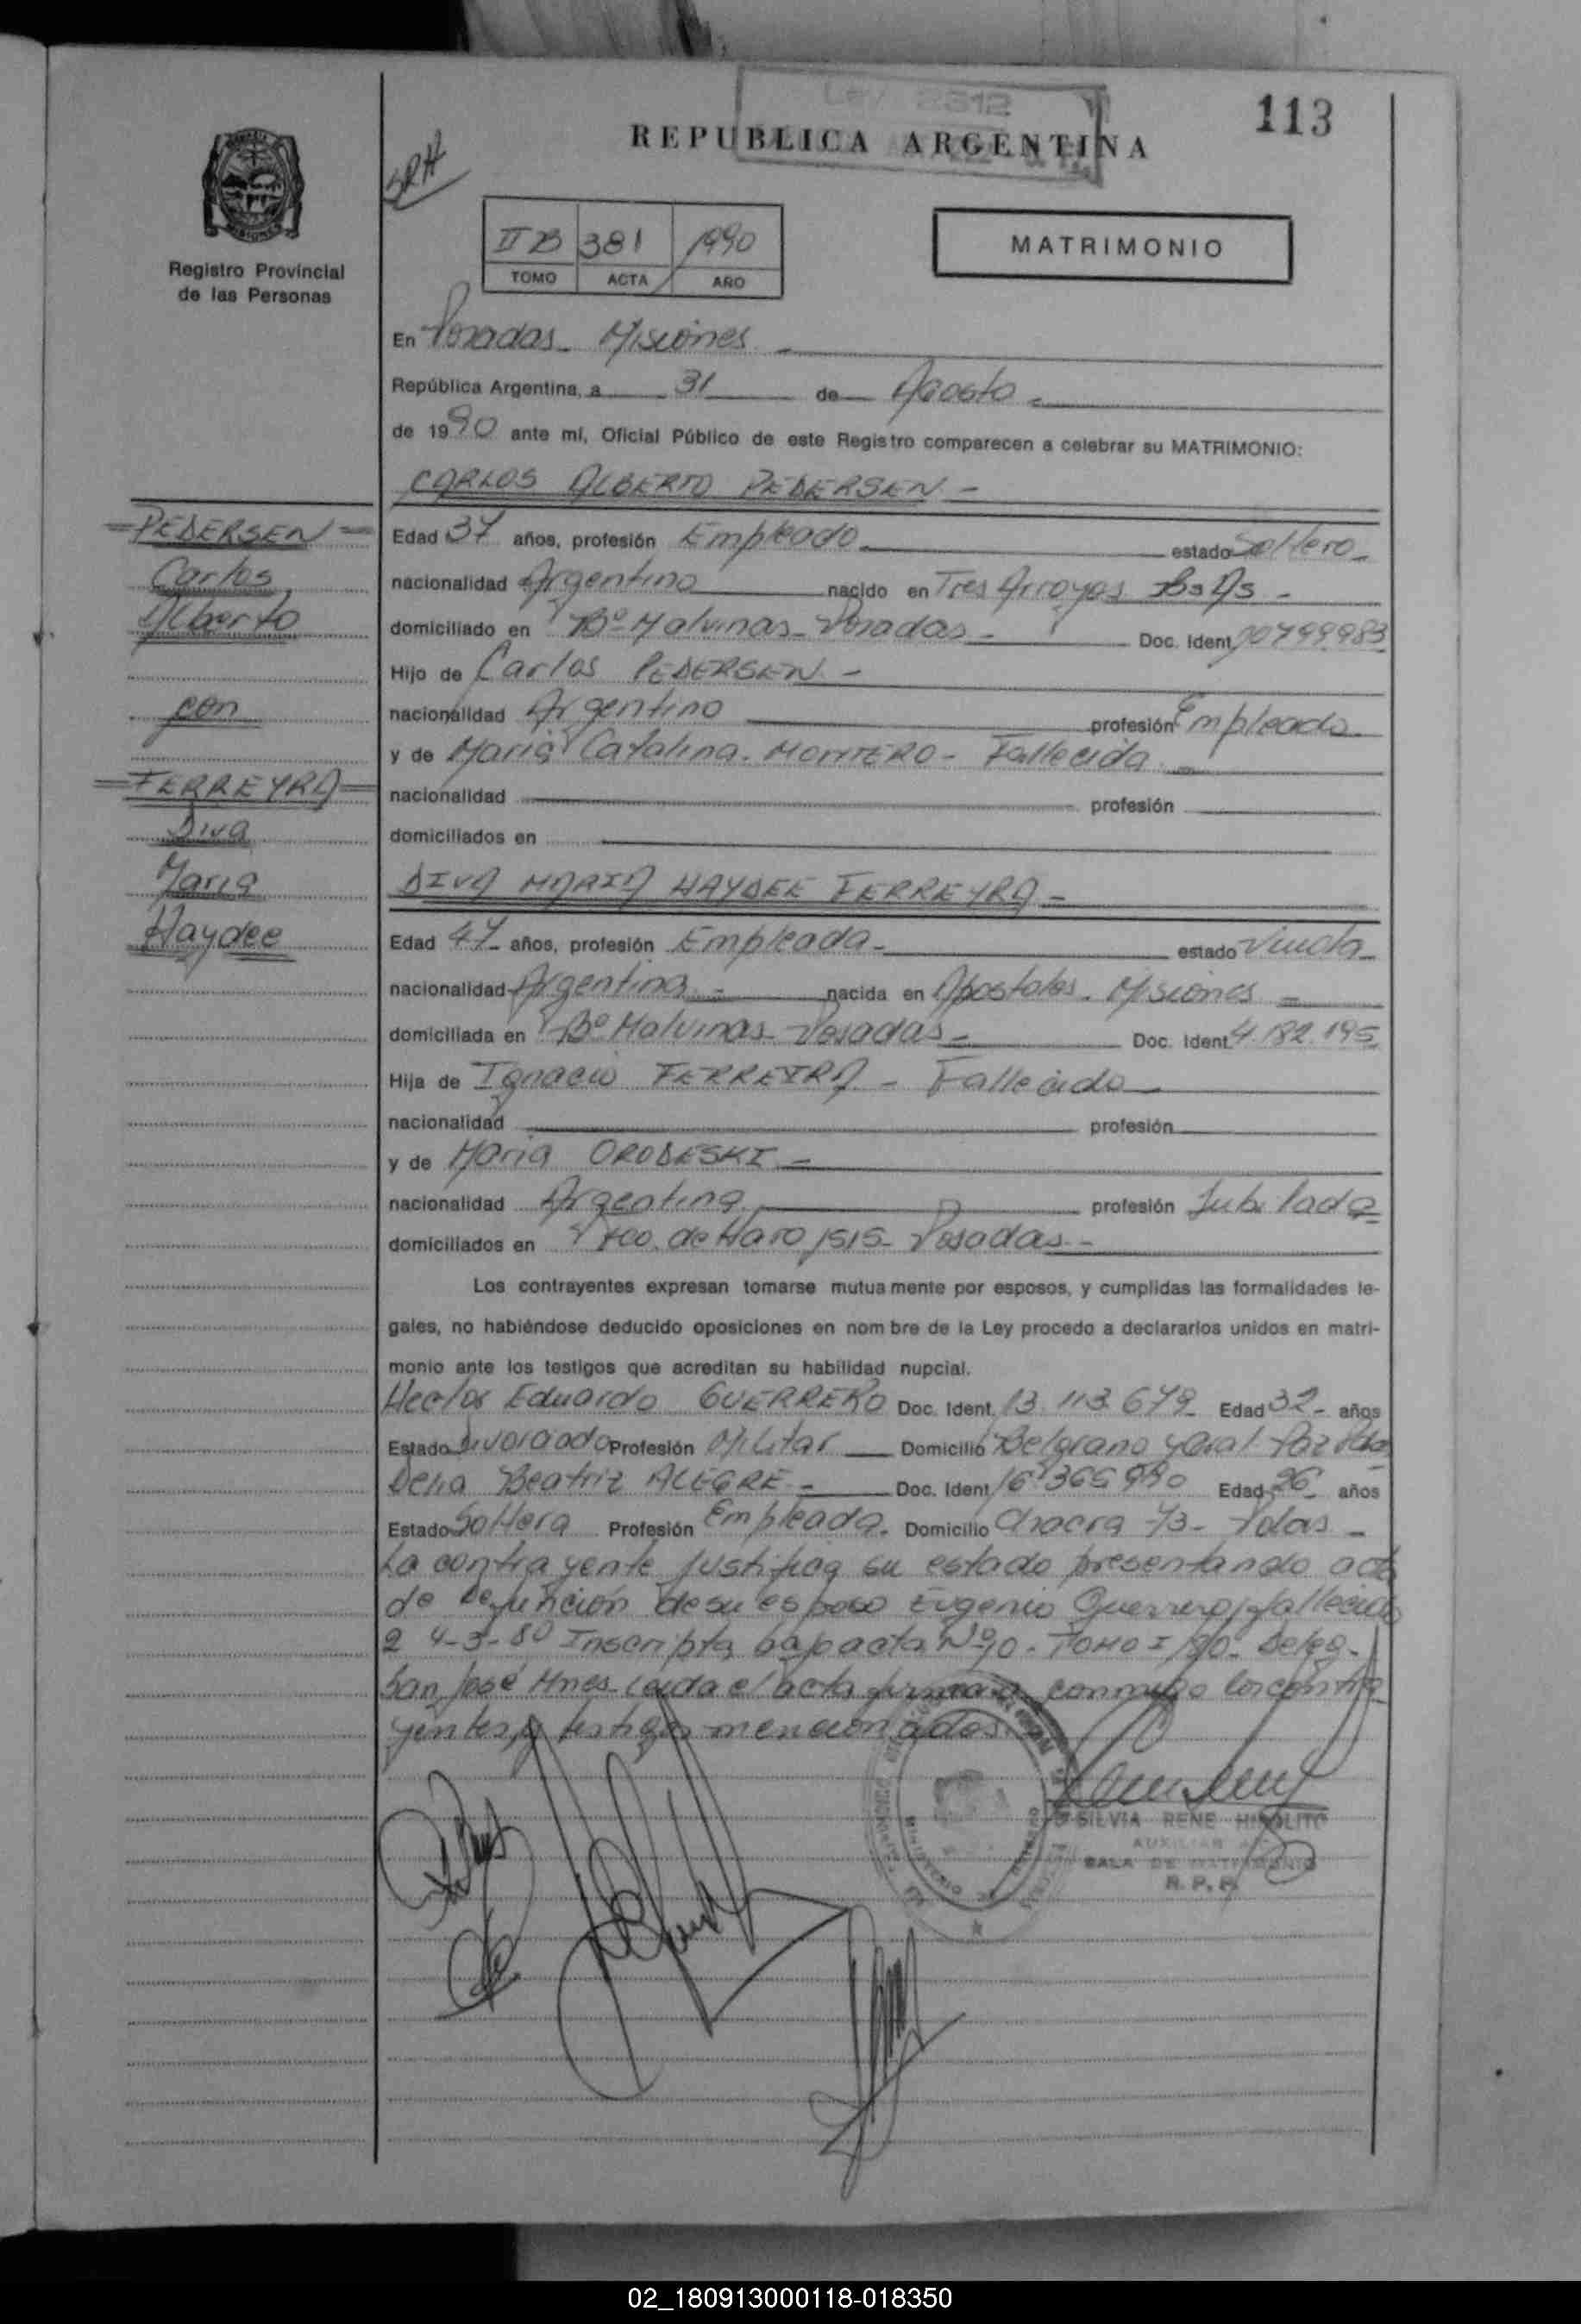 Ley 2512
113
REPUBLICA ARGENTINA
SRH
Registro Provincial
de las Personas
II B 381 1990
TOMO ACTA AÑO
MATRIMONIO
En Posadas - Misiones -
República Argentina, a 31 de Agosto -
de 1990 ante mí, Oficial Público de este Registro comparecen a celebrar su MATRIMONIO:
CARLOS ALBERTO PEDERSEN -
=PEDERSEN=
Carlos
Alberto
con
=FERREYRA=
Diva
Maria
Haydee
Edad 37 años, profesión Empleado estado Soltero -
nacionalidad Argentino nacido en Tres Arroyos Bs As -
domiciliado en Bº Malvinas - Posadas - Doc. Ident. 10799983
Hijo de Carlos PEDERSEN -
nacionalidad Argentino profesión Empleado -
y de Maria Catalina - MONTERO - Fallecida -
nacionalidad profesión
domiciliados en
DIVA MARIA HAYDEE FERREYRA -
Edad 47 - años, profesión Empleada - estado Viuda -
nacionalidad Argentina - nacida en Apostoles - Misiones -
domiciliada en Bº Malvinas - Posadas - Doc. Ident. 4.182.195
Hija de Ignacio FERREIRA - Fallecido
nacionalidad profesión
y de Maria ORODESKI -
nacionalidad Argentina profesión Jubilada
domiciliados en Fco. de Haro 1515 - Posadas -
Los contrayentes expresan tomarse mutuamente por esposos, y cumplidas las formalidades le-
gales, no habiéndose deducido oposiciones en nombre de la Ley procedo a declararlos unidos en matri-
monio ante los testigos que acreditan su habilidad nupcial.
Hector Eduardo GUERRERO Doc. Ident. 13.113.679 - Edad 32 - años
Estado Divorciado Profesión Militar Domicilio Belgrano y Gral Paz Pdas
Delia Beatriz ALEGRE - Doc. Ident. 16.365.990 Edad 26 - años
Estado Soltera Profesión Empleada - Domicilio Chacra 73 - Pdas -
La contrayente justifica su estado presentando acta
de defunción de su esposo Eugenio Guerrero, fallecido
4-3-80 Inscripta bajo acta Nº 10 - TOMO I /80 - Deleg -
San José Mnes - Leida el acta firman conmigo los contra-
yentes y testigos mencionados.
SILVIA RENE HIPOLITO
AUXILIAR
SALA DE MATRIMONIO
R. P. P.
02_180913000118-018350